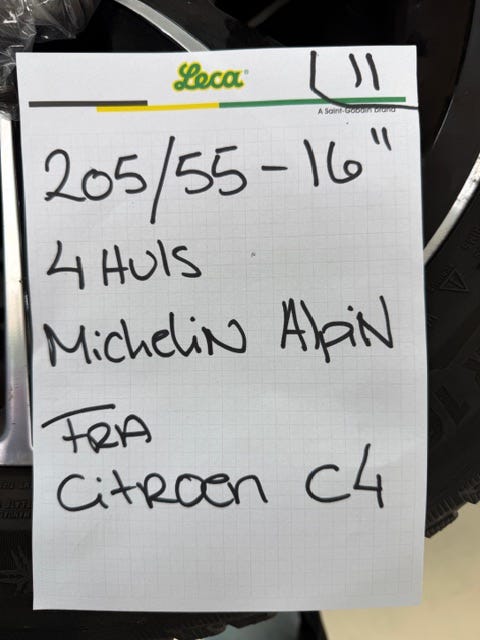 Leca
11
A Saint-Gobain brand
205/55-16"
4 HULS
Michelin Alpin
FRA
Citroen C4